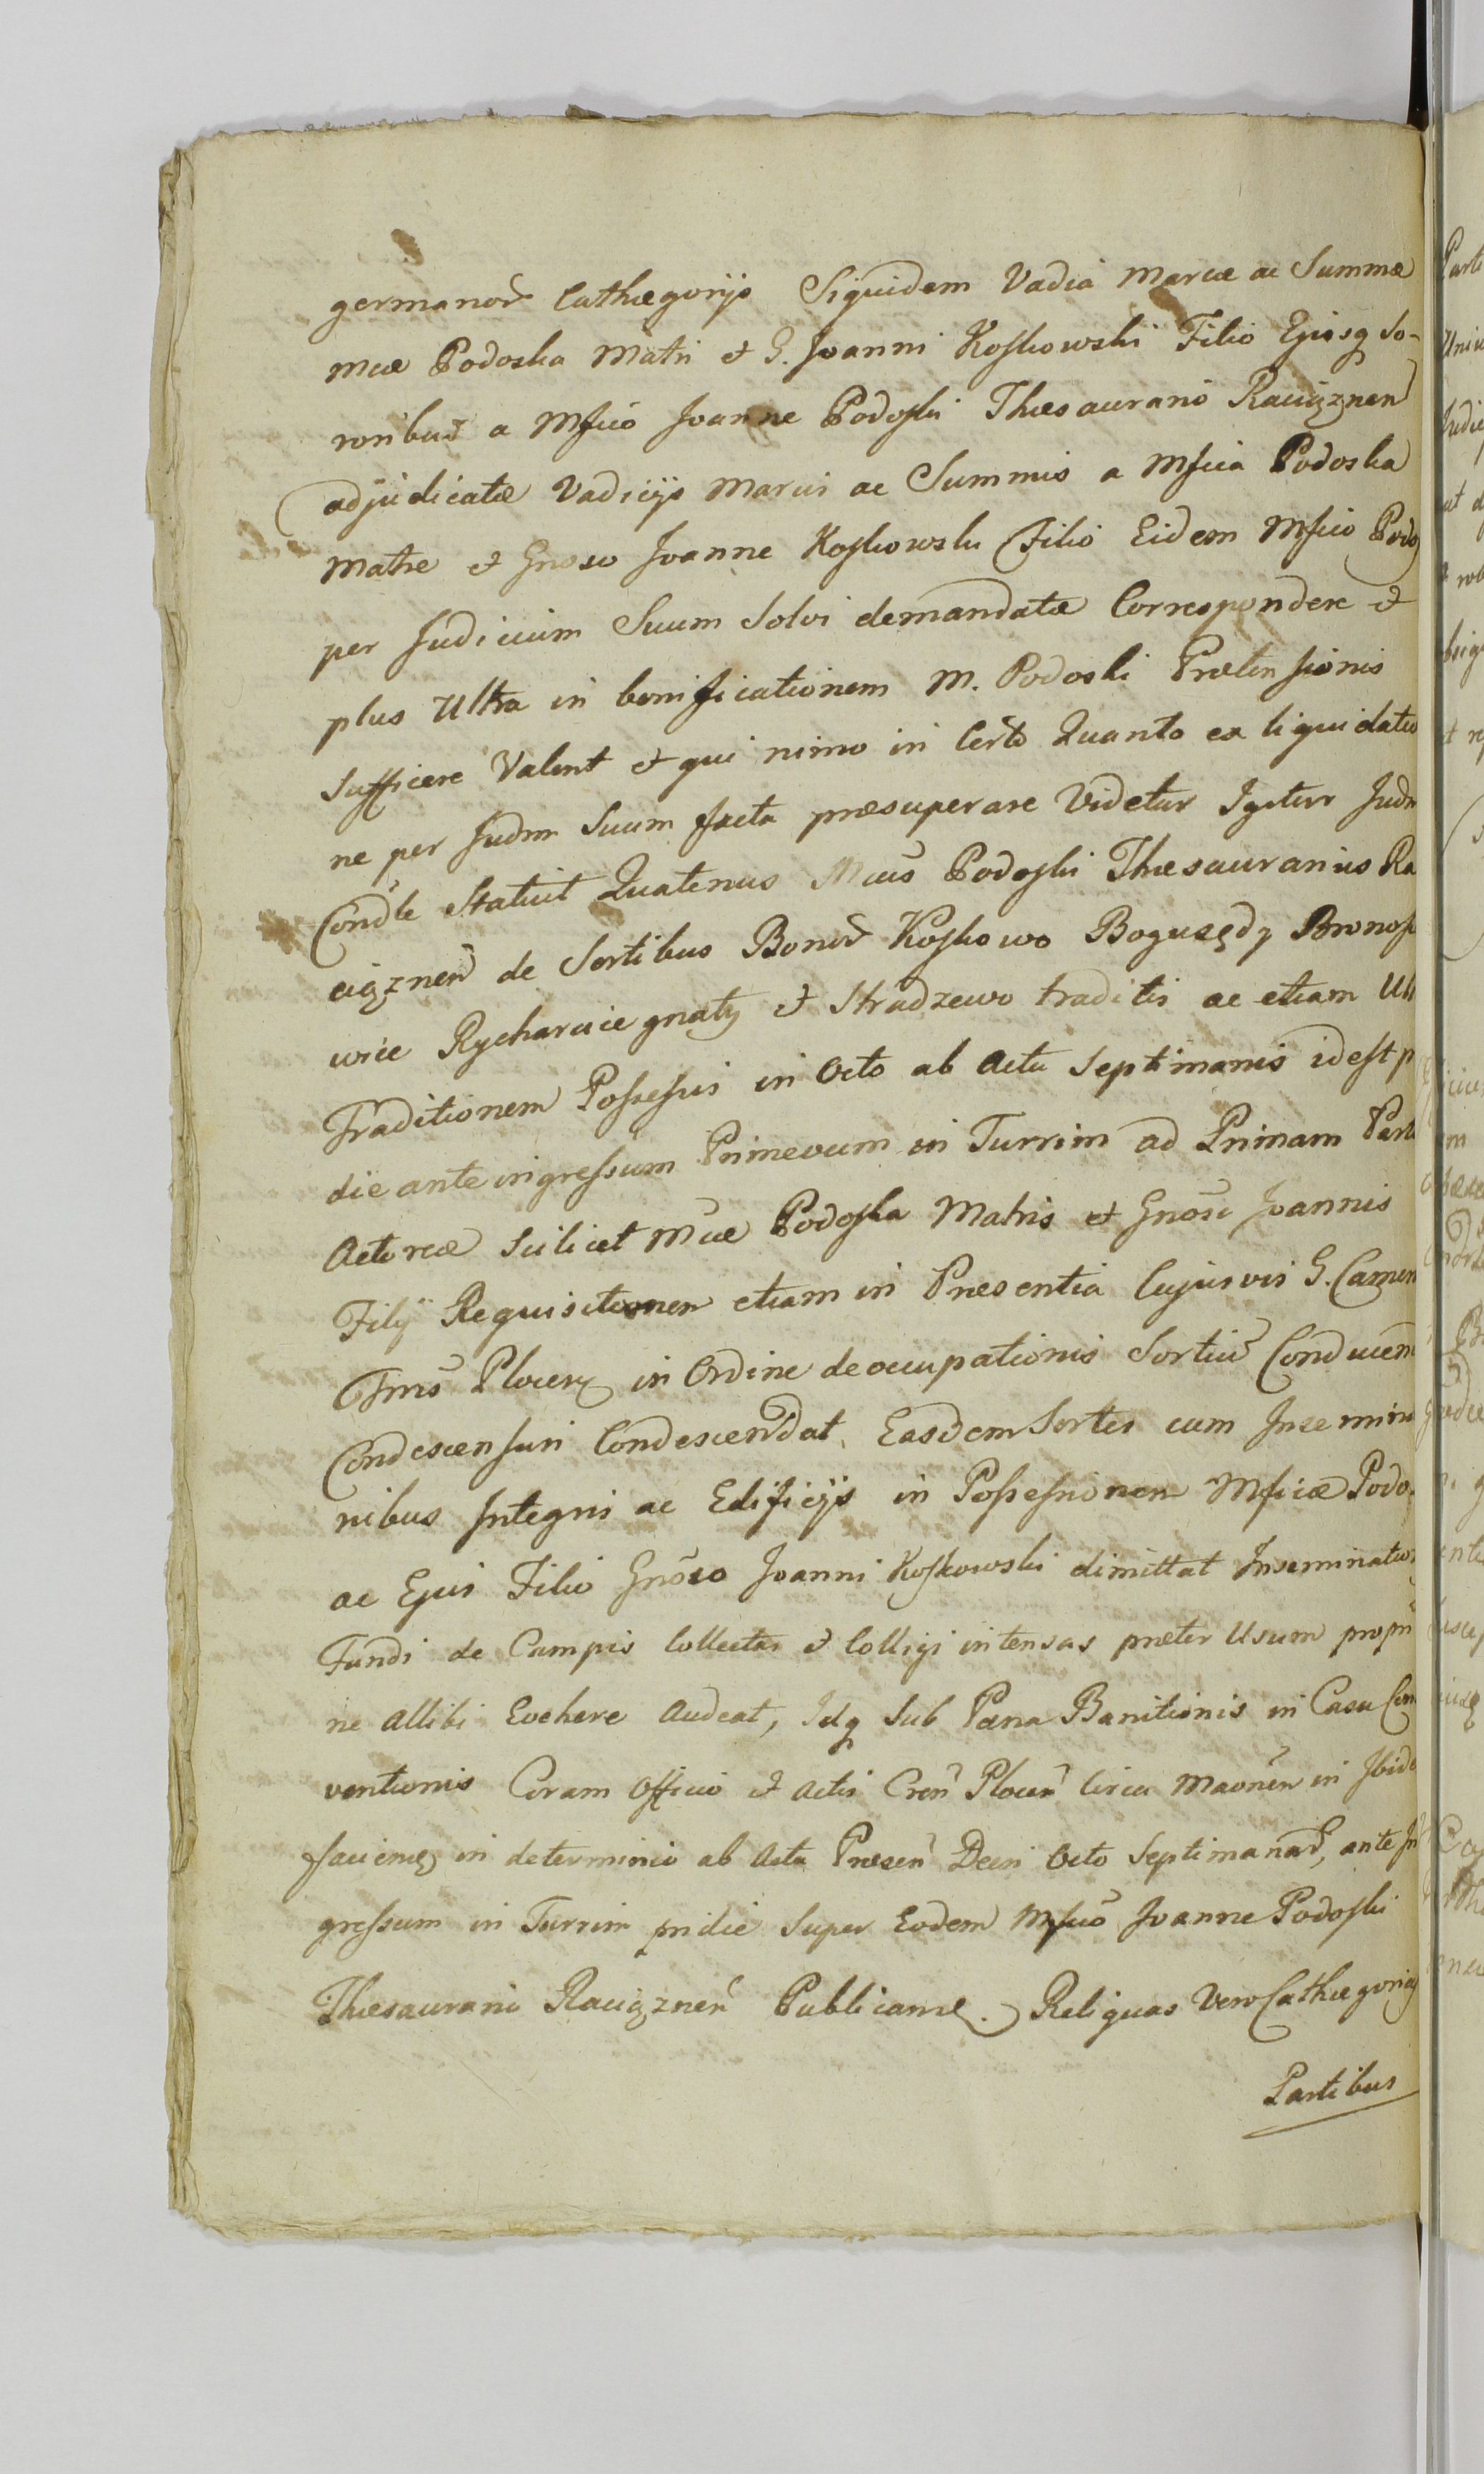 germanor̃ Cathegorijs Siquidem Vadia Marcæ ac Summæ
mcæ Podoska Matri et G. Joanni Koskowski Filio Ejusq So-
roribus a Mfico Joanne Podoski Thesaurario Raciąznen
adjudicatæ Vadiijs Marcis ac Summis a Mfica Podoska
Matre et Gnoso Joanne Koskowski Filio Eidem Mfico Podo
per Judicium Suum Solvi demandatæ Correspondere et
plus Ultra in bonificationem M. Podoski Prætensionis
Sufficere Valent et qui nimo in Certo Quanto ex liquidatio
ne per Judm Suum facta præsuperare Videtur Igitur Judm
Condle Statuit Quatenus Mcus Podoski Thesaurarius Ra
ciąznen de Sortibus Bonor̃ Koskowo Bogusędy Bronos
wice Rycharcice gnaty et Stradzewo traditis ac etiam Ult
Traditionem Possessis in Octo ab Actu Septimanis idest p
die ante ingressum Primevum in Turrim ad Primam Part
Actoreæ Scilicet Mcæ Podoska Matris et Gnosi Joannis
Filij Requisitionem etiam in Præsentia Cujusvis G. Camer
Trris Plocen in Ordine deoccupationis Sortiũ Conducen
Condescensuri Condescendat, Easdem Sortes cum Insemina
nibus Integris ac Edificijs in Possessionem Mficæ Podo
ac Ejus Filio Gnoso Joanni Koskowski dimittat Inseminatio
Fundi de Campis Collectas et Colligi intensas præter Usum propri
ne Allibi Evehere Audeat, Idq Sub Pæna Banitionis in Casu Con
ventionis Coram Officio et Actis Cren Plocen Circa Maonen in Ibide
faciend in determinio ab Actu Præsen Decri Octo Septimanar̃, ante In
gressum in Turrim pridie Super Eodem Mfico Joanne Podoski
Thesaurario Raciąznen Publicand. Reliquas Vero Cathegorias
Partibus